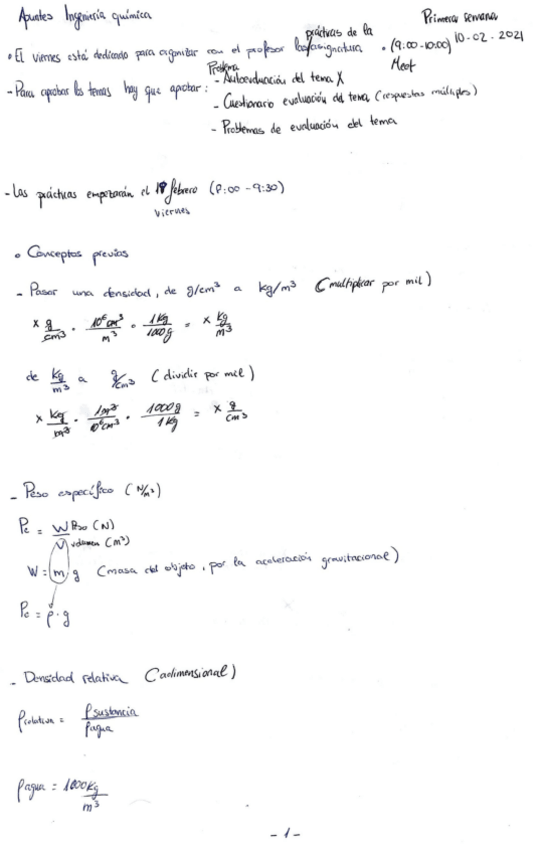 Apuntes Ingeniería química
Primera semana
10-02-2021
• El viernes está dedicado para organizar con el profesor las prácticas de la asignatura • (9:00-10:00)
Meet
- Para aprobar los temas hay que aprobar: - Autoevaluación del tema X
Problema
- Cuestionario evaluación del tema (respuestas múltiples)
- Problemas de evaluación del tema
- Las prácticas empezarán el febrero (8:00 - 9:30)
viernes
• Conceptos previos
- Pasar una densidad, de g/cm³ a kg/m³ (multiplicar por mil)
x g/cm³ · 10⁶ cm³/m³ · 1 kg/1000 g = x kg/m³
de kg/m³ a g/cm³ (dividir por mil)
x kg/m³ · 1 m³/10⁶ cm³ · 1000 g/1 kg = x g/cm³
- Peso específico (N/m³)
Pe = W/V Peso (N) volumen (m³)
W = m g (masa del objeto, por la aceleración gravitacional)
Pe = ρ · g
- Densidad relativa (adimensional)
ρrelativa = ρsustancia/ρagua
ρagua = 1000 kg/m³
- 1 -